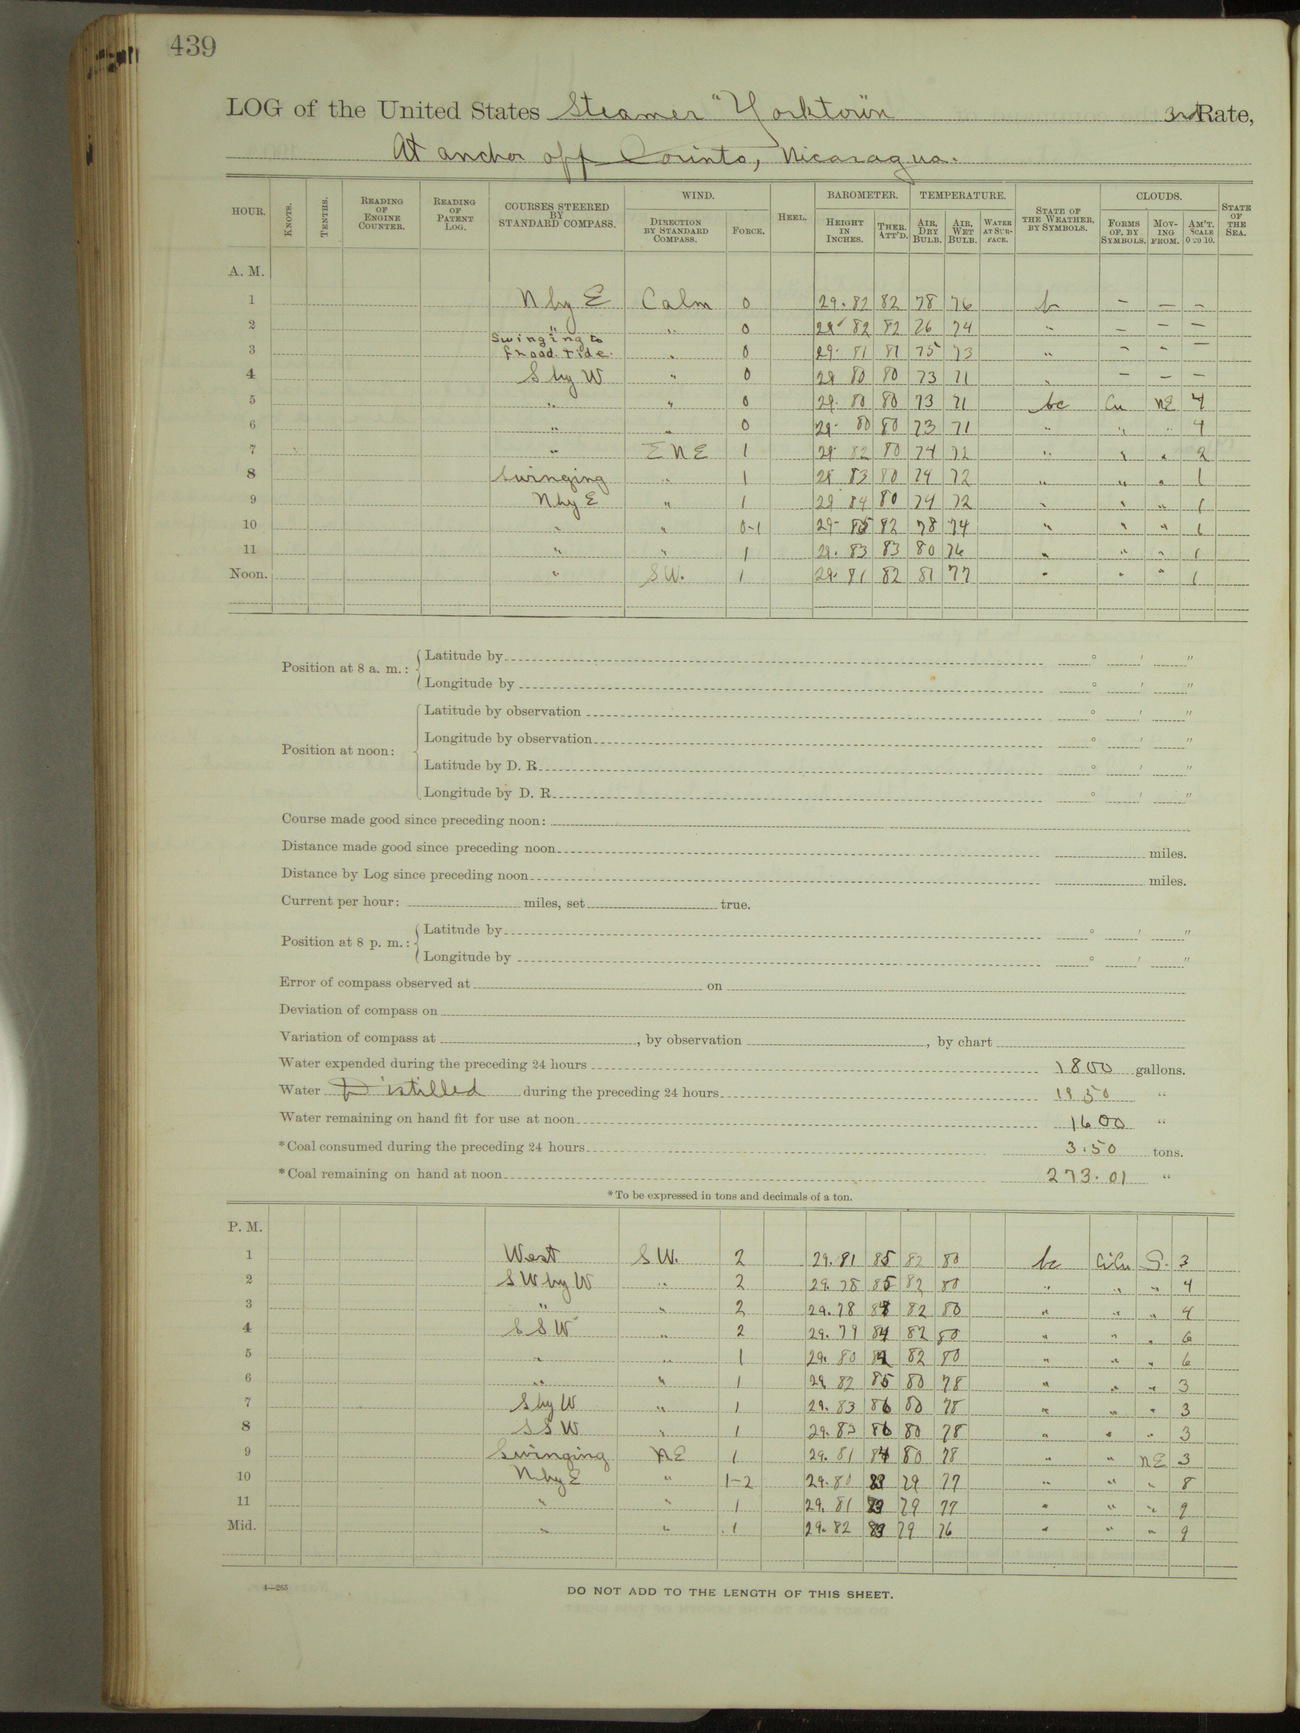 439
LOG of the United States Steamer "Yorktown" 3rd Rate,
At anchor off Corinto, Nicaragua.
HOUR. KNOTS. TENTHS. READING OF ENGINE COUNTER. READING OF PATENT LOG. COURSES STEERED BY STANDARD COMPASS. WIND. DIRECTION BY STANDARD COMPASS. FORCE. HEEL. BAROMETER. HEIGHT IN INCHES. THER. ATT'D. TEMPERATURE. AIR, DRY BULB. AIR, WET BULB. WATER AT SURFACE. STATE OF THE WEATHER, BY SYMBOLS. CLOUDS. FORMS OF, BY SYMBOLS. MOVING FROM. AM'T. SCALE 0 TO 10. STATE OF THE SEA.
A. M.
1 N by E Calm 0 29.82 82 78 76 b — — —
2 " " 0 29 82 82 76 74 " — — —
3 Swinging to flood tide. " 0 29. 81 81 75 73 " — — —
4 S by W " 0 29 80 80 73 71 " — — —
5 " " 0 29. 80 80 73 71 bc Cu NE 4
6 " " 0 29. 80 80 73 71 " " " 4
7 " ENE 1 29. 82 80 74 72 " " " 2
8 Swinging " 1 29 83 80 74 72 " " " 1
9 N by E " 1 29 84 80 74 72 " " " 1
10 " " 0-1 29. 85 82 78 74 " " " 1
11 " " 1 29. 83 83 80 76 " " " 1
Noon. " SW. 1 29. 81 82 81 77 " " " 1
Position at 8 a. m.: Latitude by ° ′ ″
Longitude by ° ′ ″
Position at noon: Latitude by observation ° ′ ″
Longitude by observation ° ′ ″
Latitude by D. R. ° ′ ″
Longitude by D. R. ° ′ ″
Course made good since preceding noon:
Distance made good since preceding noon miles.
Distance by Log since preceding noon miles.
Current per hour: miles, set true.
Position at 8 p. m.: Latitude by ° ′ ″
Longitude by ° ′ ″
Error of compass observed at on
Deviation of compass on
Variation of compass at , by observation , by chart
Water expended during the preceding 24 hours 1800 gallons.
Water Distilled during the preceding 24 hours 1950 "
Water remaining on hand fit for use at noon 1600 "
*Coal consumed during the preceding 24 hours 3.50 tons.
*Coal remaining on hand at noon 273.01 "
*To be expressed in tons and decimals of a ton.
P. M.
1 West SW. 2 29.81 85 82 80 bc CiCu S. 3
2 SW by W " 2 29.78 85 82 80 " " " 4
3 " " 2 29.78 82 80 " " " 4
4 SSW " 2 29.79 84 82 80 " " " 6
5 " " 1 29. 80 82 80 " " " 6
6 " " 1 29. 82 85 80 78 " " " 3
7 S by W " 1 29. 83 86 80 78 " " " 3
8 SSW " 1 29. 83 86 80 78 " " " 3
9 Swinging NE 1 29. 81 84 80 78 " " NE 3
10 N by E " 1-2 29.80 79 77 " " " 8
11 " " 1 29. 81 79 77 " " " 9
Mid. " " 1 29. 82 83 79 76 " " " 9
1—265
DO NOT ADD TO THE LENGTH OF THIS SHEET.